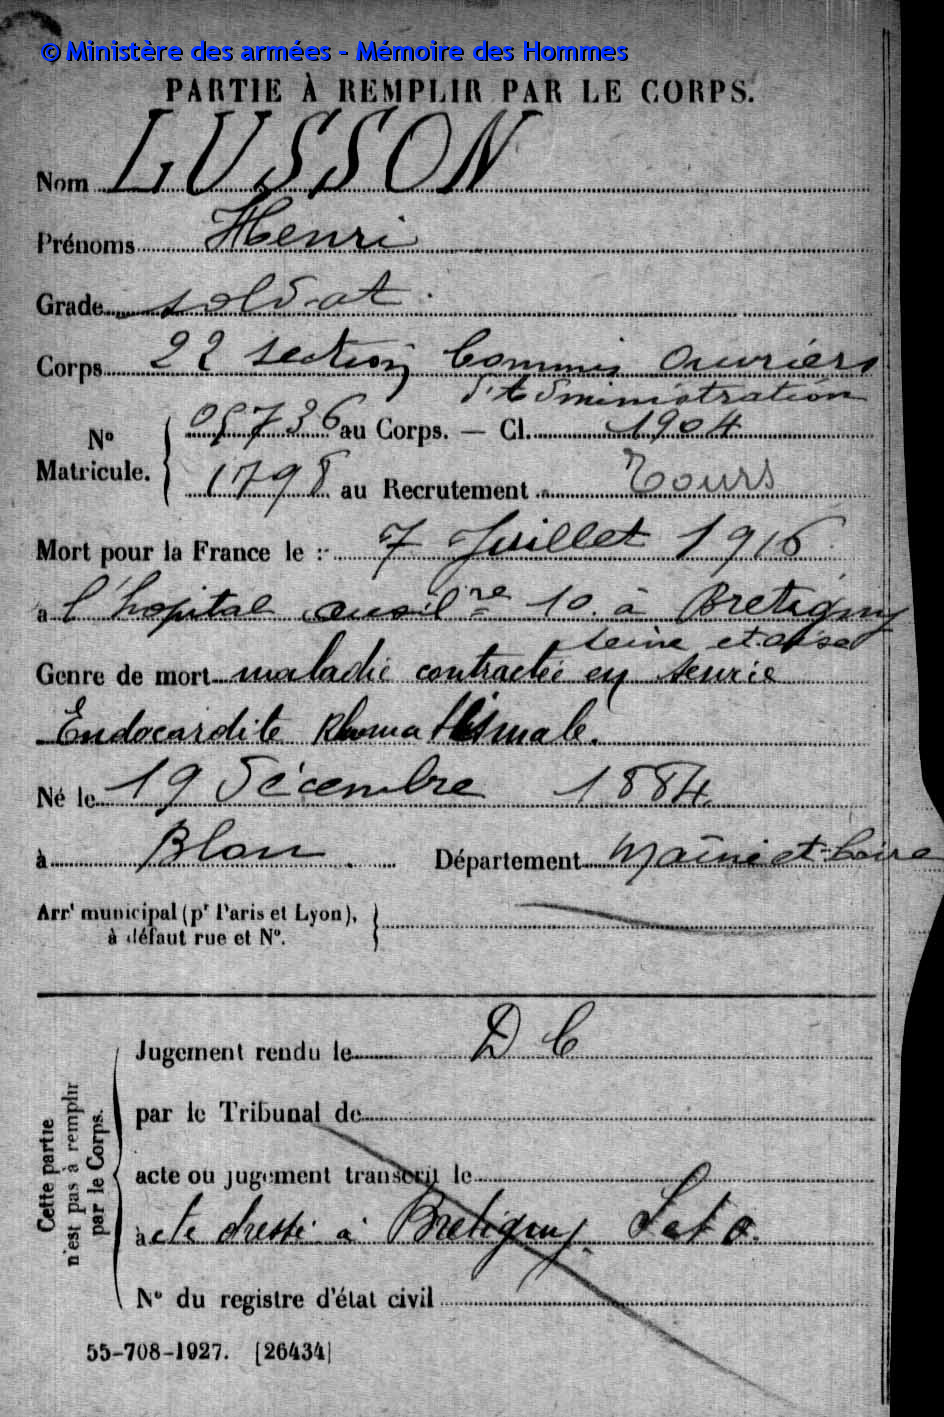 © Ministère des armées - Mémoire des Hommes
PARTIE À REMPLIR PAR LE CORPS.
Nom LUSSON
Prénoms Henri
Grade soldat.
Corps 22 section Commis Ouvriers
d'Administration
05736 au Corps. — Cl. 1904
N° Matricule.
1798 au Recrutement Tours
Mort pour la France le :- 7 Juillet 1916
à l'hopital auxil re 10. à Bretigny
seine et oise
Genre de mort maladie contractée en service
Endocardite Rhumatismale.
Né le 19 décembre 1884
à Blou. Département Maine et-Loire
Arr' municipal (pr Paris et Lyon),
à défaut rue et N°.
Cette partie
n'est pas à remplir
par le Corps.
Jugement rendu le DC
par le Tribunal de
acte ou jugement transcrit le
acte dressé à Bretigny. S et O.
N° du registre d'état civil
55-708-1927. [26434]